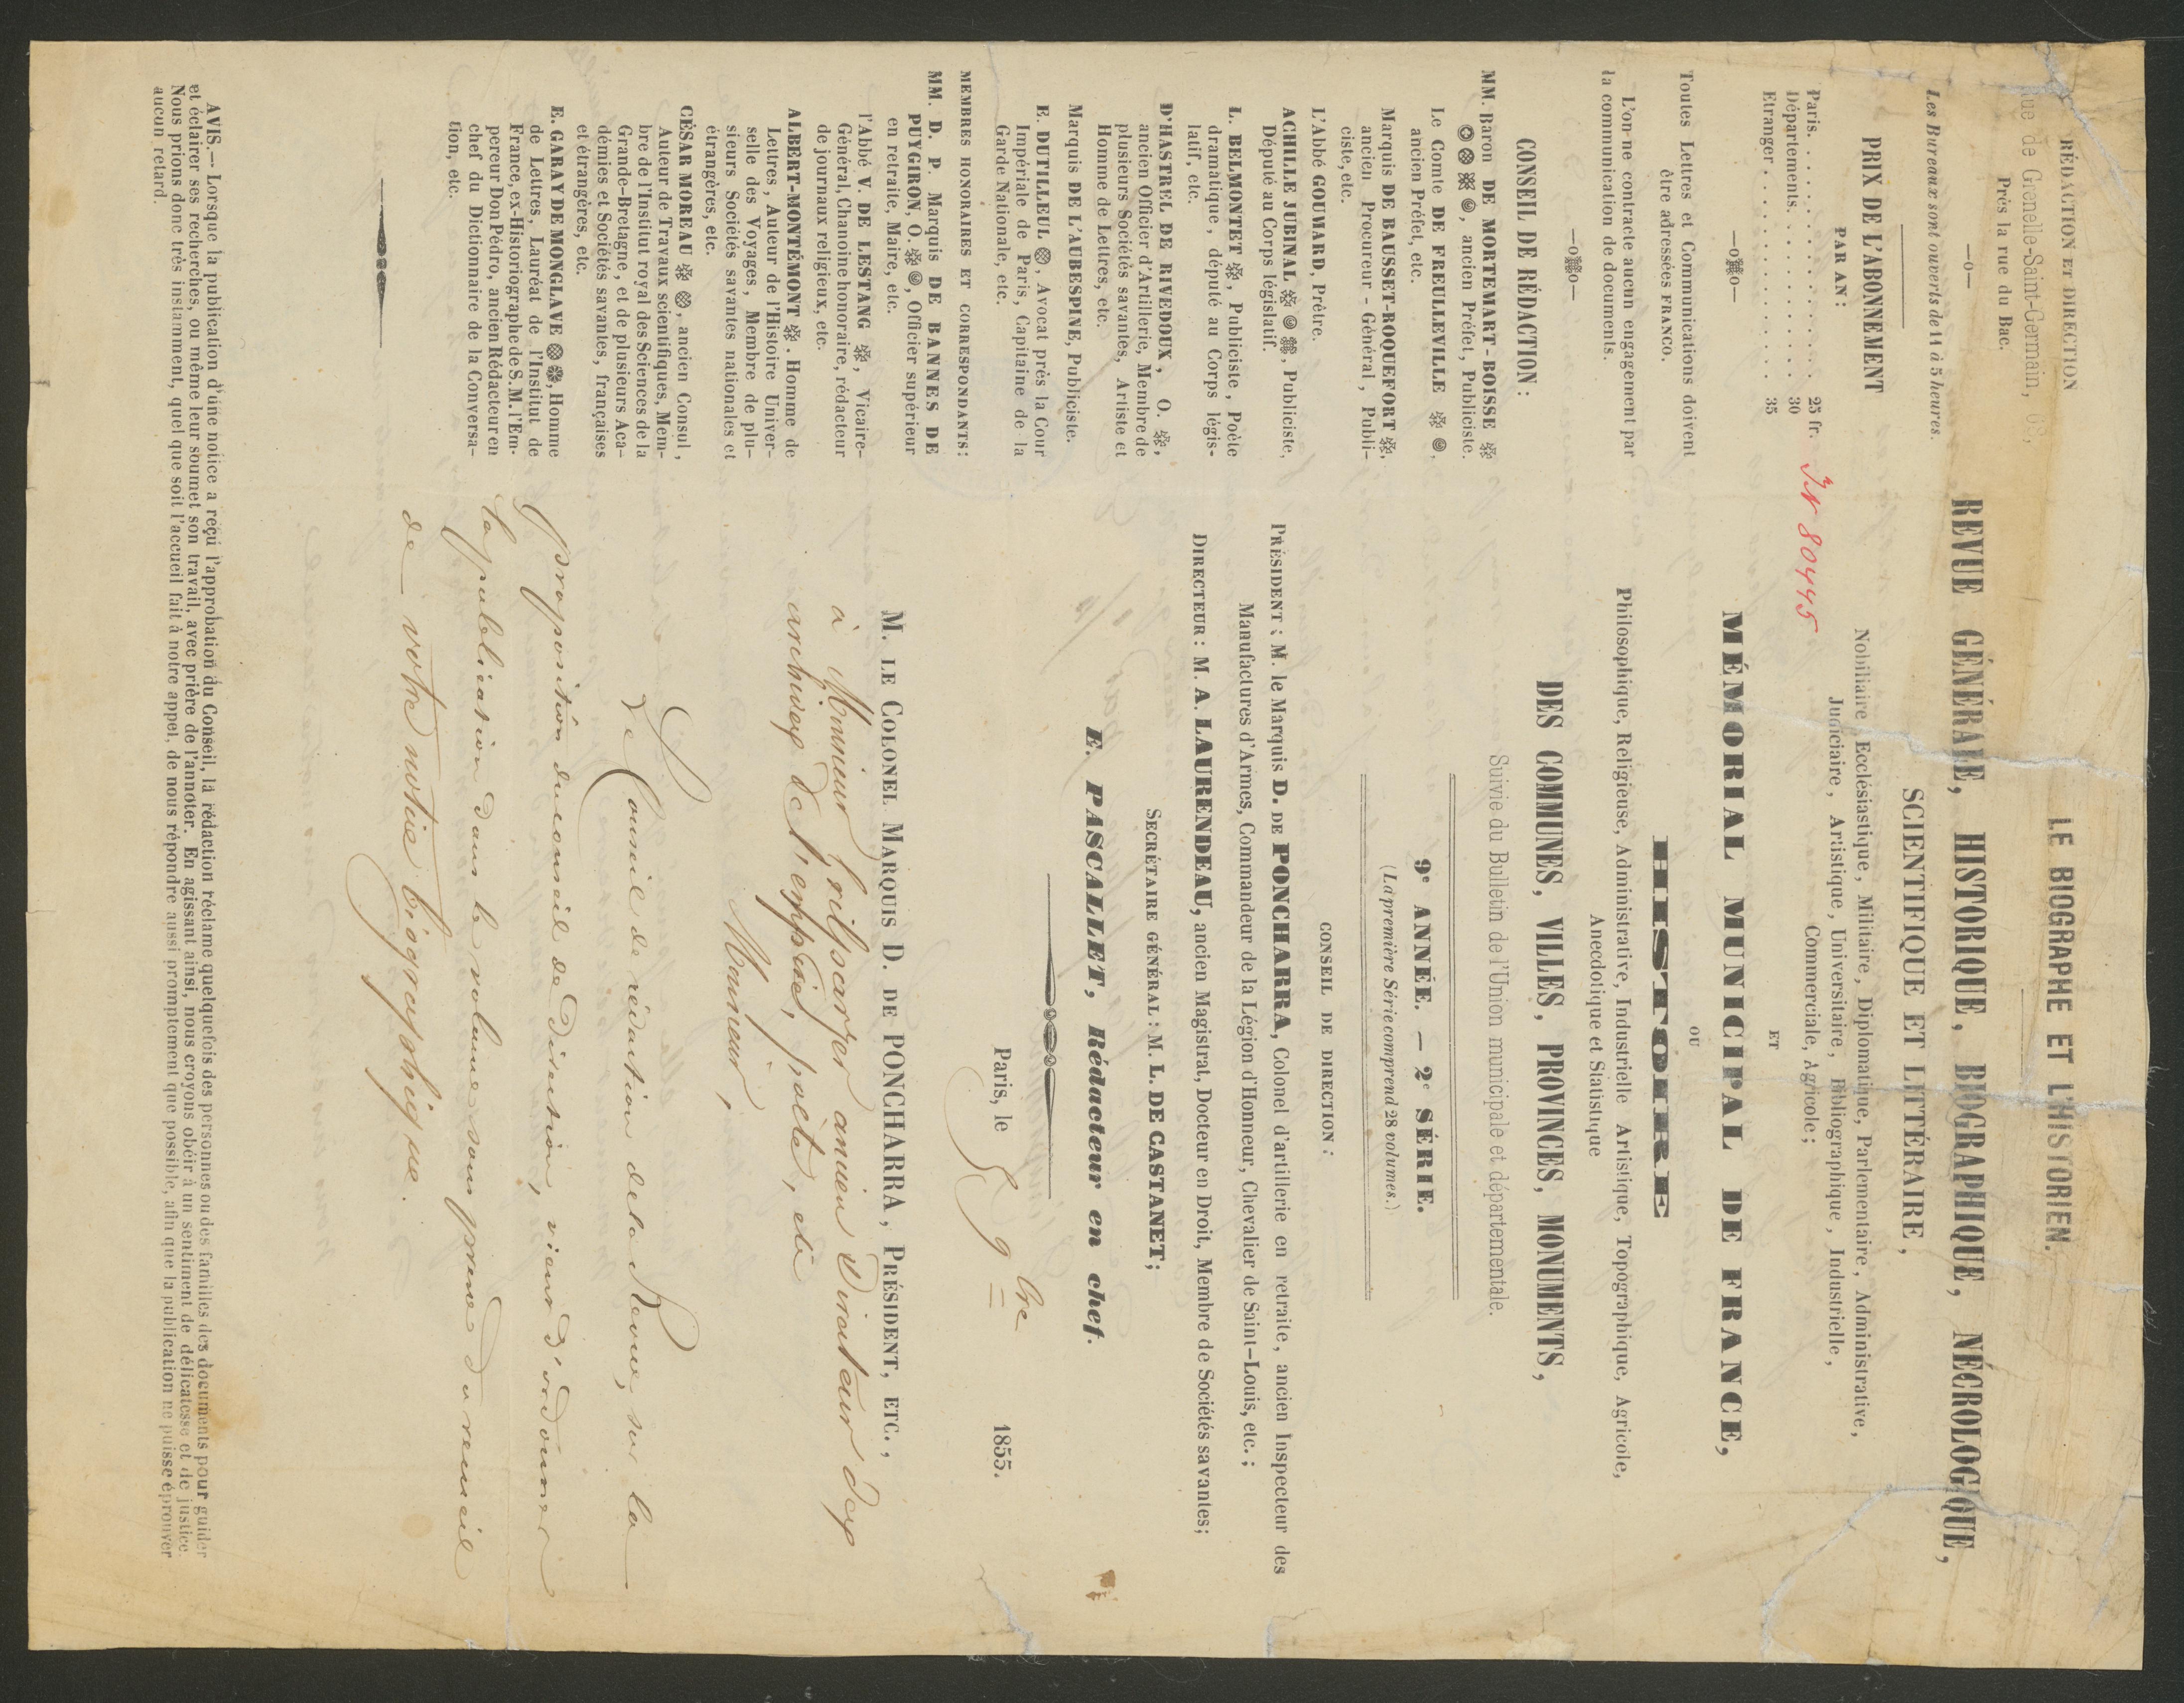 LE BIOGRAPHE ET L'HISTORIEN.
REVUE GÉNÉRALE, HISTORIQUE, BIOGRAPHIQUE, NÉCROLOGIQUE,
SCIENTIFIQUE ET LITTÉRAIRE,
Nobiliaire, Ecclésiastique, Militaire, Diplomatique, Parlementaire, Administrative,
Judiciaire, Artistique, Universitaire, Bibliographique, Industrielle,
Commerciale, Agricole;
ET
MÉMORIAL MUNICIPAL DE FRANCE,
OU
HISTOIRE
Philosophique, Religieuse, Administrative, Industrielle Artistique, Topographique, Agricole,
Anecdotique et Statistique
DES COMMUNES, VILLES, PROVINCES, MONUMENTS,
Suivie du Bulletin de l'Union municipale et départementale.
9e ANNÉE. — 2e SÉRIE.
(La première Série comprend 28 volumes.)
CONSEIL DE DIRECTION:
PRÉSIDENT: M. le Marquis D. DE PONCHARRA, Colonel d'artillerie en retraite, ancien Inspecteur des
Manufactures d'Armes, Commandeur de la Légion d'Honneur, Chevalier de Saint-Louis, etc.;
DIRECTEUR: M. A. LAURENDEAU, ancien Magistrat, Docteur en Droit, Membre de Sociétés savantes;
SECRÉTAIRE GÉNÉRAL: M. L. DE CASTANET;
E. PASCALLET, Rédacteur en chef.
RÉDACTION ET DIRECTION
rue de Grenelle-Saint-Germain,
Près la rue du Bac.
—o—
Les Bureaux sont ouverts de 11 à 5 heures.
PRIX DE L'ABONNEMENT
PAR AN:
Paris. . . . . . . . . . . . . 25 fr.
Départements. . . . . . . . . 30
Etranger . . . . . . . . . . . 35
IN 80445
Toutes Lettres et Communications doivent
être adressées FRANCO.
L'on ne contracte aucun engagement par
la communication de documents.
CONSEIL DE RÉDACTION:
MM. Baron DE MORTEMART-BOISSE
, ancien Préfet, Publiciste.
Le Comte DE FREULLEVILLE
ancien Préfet, etc.
Marquis DE BAUSSET-ROQUEFORT,
ancien Procureur-Général, Publi-
ciste, etc.
L'Abbé GOUMARD, Prêtre.
ACHILLE JUBINAL, Publiciste,
Député au Corps législatif.
L. BELMONTET, Publiciste, Poète
dramatique, député au Corps légis-
latif, etc.
D'HASTREL DE RIVEDOUX, O.,
ancien Officier d'Artillerie, Membre de
plusieurs Sociétés savantes, Artiste et
Homme de Lettres, etc.
Marquis DE L'AUBESPINE, Publiciste.
E. DUTILLEUL, Avocat près la Cour
Impériale de Paris, Capitaine de la
Garde Nationale, etc.
MEMBRES HONORAIRES ET CORRESPONDANTS:
MM. D. P. Marquis DE BANNES DE
PUYGIRON, O., Officier supérieur
en retraite, Maire, etc.
l'Abbé V. DE LESTANG, Vicaire-
Général, Chanoine honoraire, rédacteur
de journaux religieux, etc.
ALBERT-MONTÉMONT. Homme de
Lettres, Auteur de l'Histoire Univer-
selle des Voyages, Membre de plu-
sieurs Sociétés savantes nationales et
étrangères, etc.
CÉSAR MOREAU, ancien Consul,
Auteur de Travaux scientifiques, Mem-
bre de l'Institut royal des Sciences de la
Grande-Bretagne, et de plusieurs Aca-
démies et Sociétés savantes, françaises
et étrangères, etc.
E. GARAY DE MONGLAVE, Homme
de Lettres, Lauréat de l'Institut de
France, ex-Historiographe de S. M. l'Em-
pereur Don Pédro, ancien Rédacteur en
chef du Dictionnaire de la Conversa-
tion, etc.
Paris, le 8 9bre 1855.
M. LE COLONEL MARQUIS D. DE PONCHARRA, PRÉSIDENT, ETC.,
à Monsieur Grillparzer ancien Directeur des
archives de l'empire, poète, etc
Monsieur,
Le Conseil de rédaction de la Revue, sur la
proposition du conseil de Direction, vient d'ordonner
la publication dans le volume sous presse du recueil
de votre notice biographique.
AVIS.— Lorsque la publication d'une notice a reçu l'approbation du Conseil, la rédaction réclame quelquefois des personnes ou des familles des documents pour guider
et éclairer ses recherches, ou même leur soumet son travail, avec prière de l'annoter. En agissant ainsi, nous croyons obéir à un sentiment de délicatesse et de justice.
Nous prions donc très instamment, quel que soit l'accueil fait à notre appel, de nous répondre aussi promptement que possible, afin que la publication ne puisse éprouver
aucun retard.